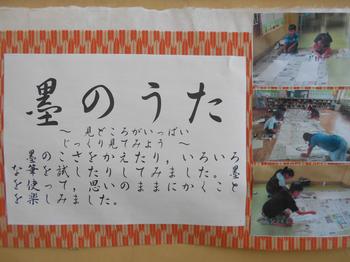 墨のうた
～ 見どころがいっぱい
じっくり見てみよう ～
墨のこさをかえたり，いろいろ
な筆を試したりしてみました。墨
を使って，思いのままにかくこと
を楽しみました。